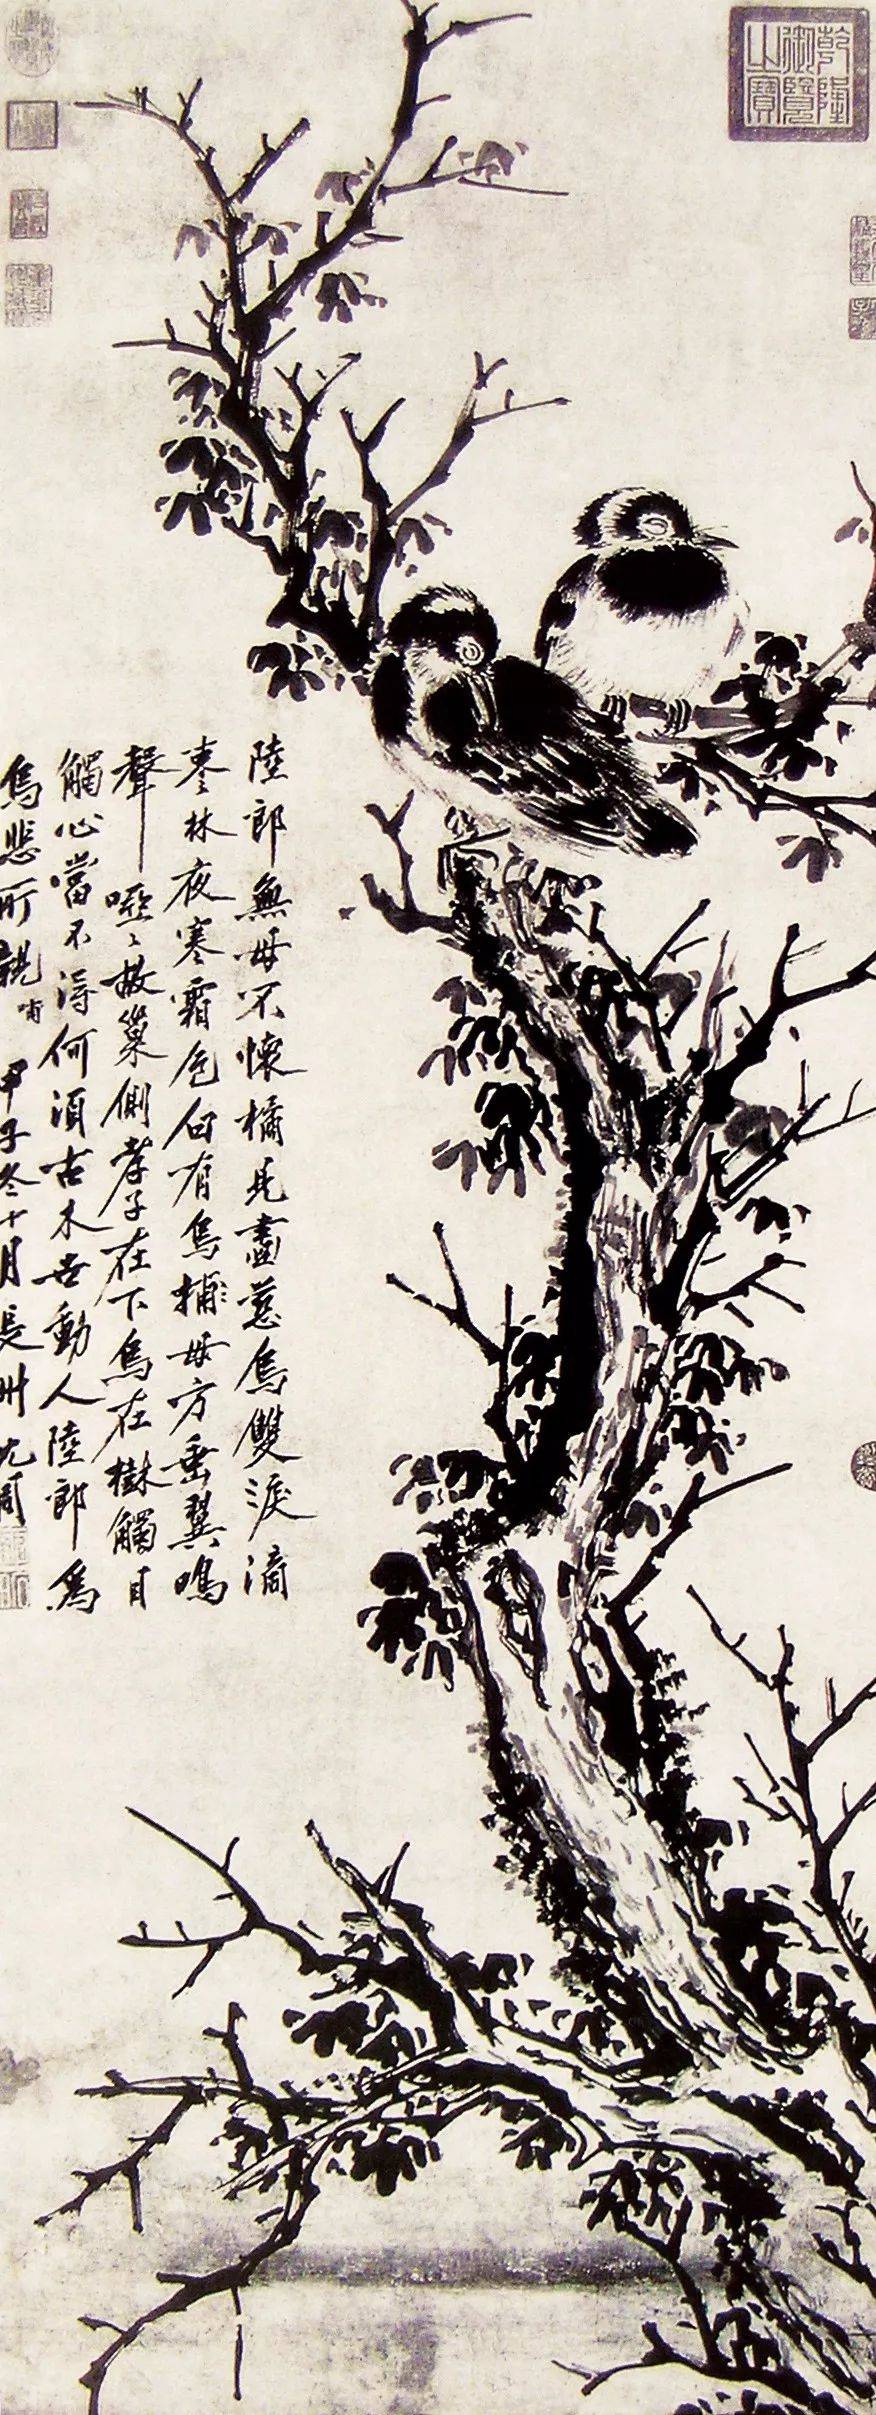 乾隆
御覽
之寶
陸郎無母不懷橘見畫慈烏雙淚滴
枣林夜寒霜色白有烏捕母方垂翼鳴
聲啞々故巢側孝子在下烏在樹觸目
觸心當不得何須古木世動人陸郎為
烏悲所親哺 甲子冬十月長州沈周